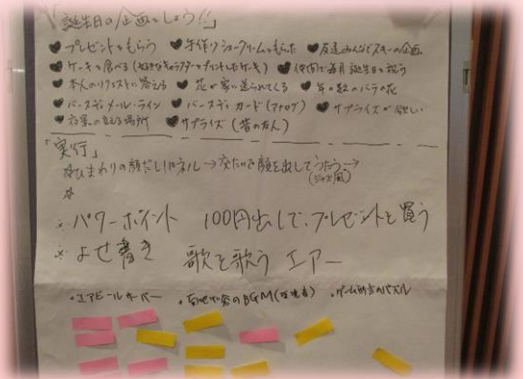 「誕生日の企画をしよう!!」
♥プレゼントをもらう ♥手作りシュークリームをもらった ♥友達みんなとスキーの企画
♥ケーキを食べる(好きなキャラクターをプリントしたケーキ) ♥仲間で毎月誕生日を祝う
♥本人のリクエストに答える ♥花が家に送られてくる ♥年の数のバラの花
♥バースデーメール・ライン ♥バースデーカード(アナログ) ♥サプライズが欲しい
♥夜景の見える場所 ♥サプライズ(昔の友人)
「実行」
☆ひまわりの顔だしパネル→交代で顔を出してうたう→
(ジャズ風)
☆
※パワーポイント 100円出して、プレゼントを買う
※よせ書き 歌を歌う エアー
・エアビールサーバー ・BGM ・ゲーム パズル